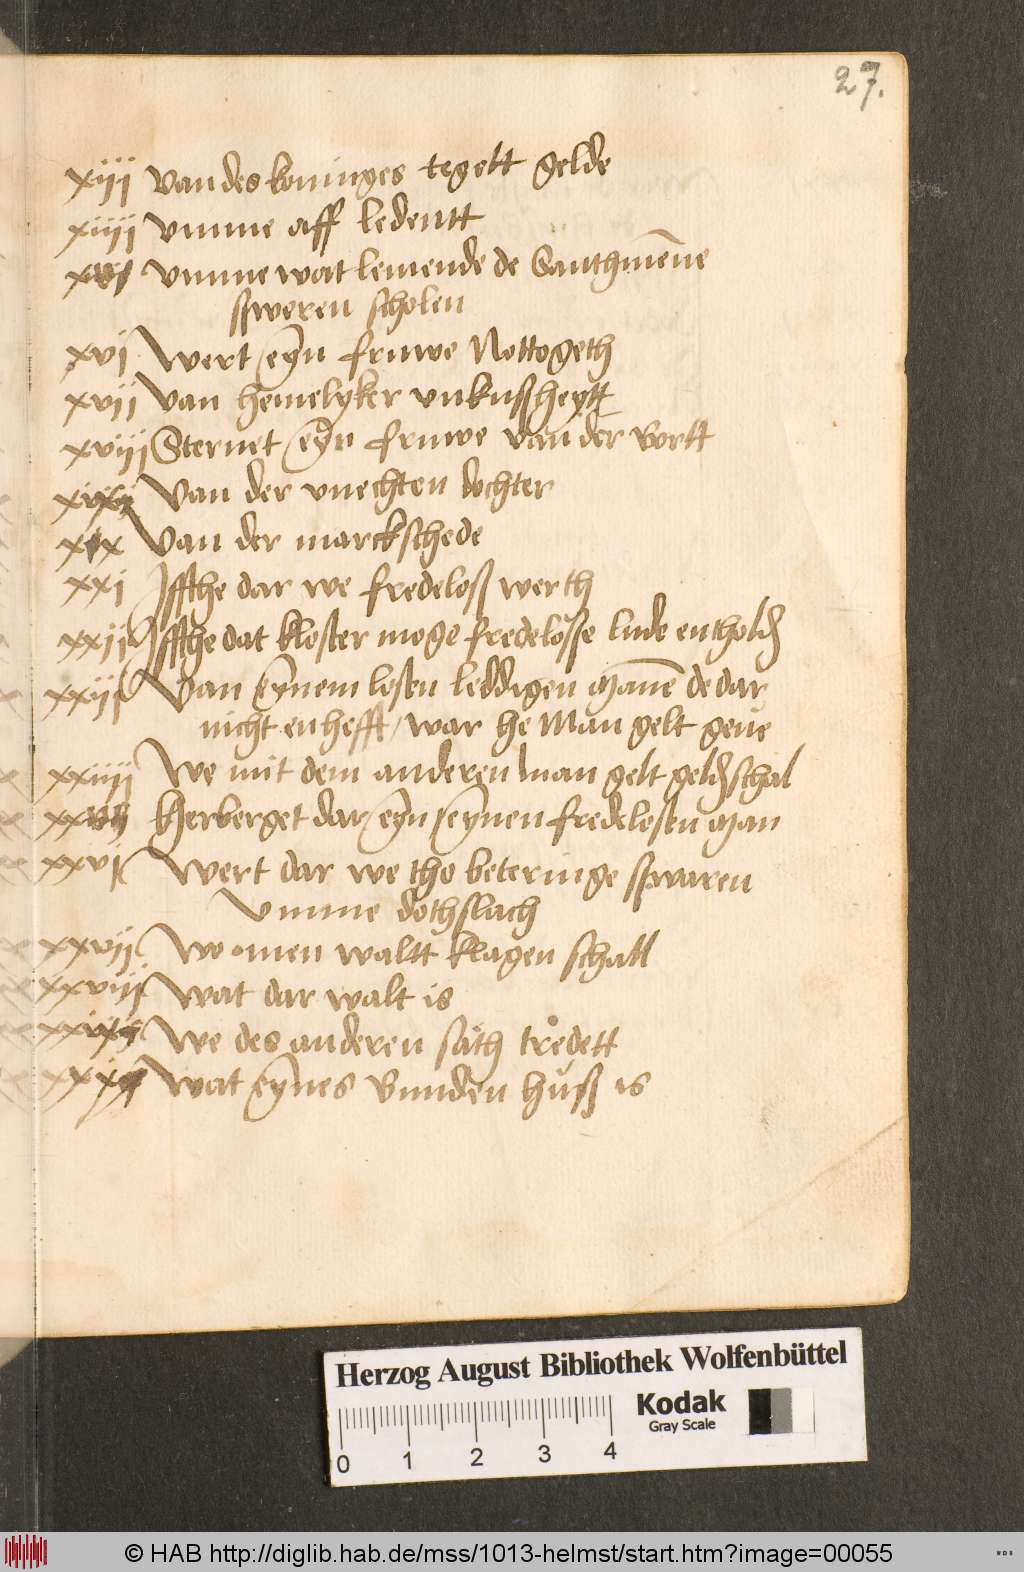 27.
xiij van des koninges tegett gelde
xiiij vmme aff ledentt
xv vmme wat lemende de Santhmēne
sweren scholen
xvi Wert eyn fruwe Nottogeth
xvij Van hemelyker vnkußheytt
xviij Steruet eyn fruwe van der bortt
xix Van der vnechten dochter
xx Van der marckschede
xxi Iffthe dar we fredeloß werth
xxij Iffthe dat kloster moge fredelosse lude entholden
xxiij Van eynem losen leddigen Manē de dar
nicht en hefft / war he Man gelt geue
xxiiij We mit dem anderen man gelt gelden schal
xxv Herberget dar eyn eynen fredelosen Man
xxvi Wert dar we tho beteringe swaren
Vmme dothslach
xxvij Wo men waltt klagen schall
xxviij Wat dar walt is
xxix We des anderen sath tredett
xxx Wat eynes bunden huß is
Herzog August Bibliothek Wolfenbüttel
Kodak
Gray Scale
0 1 2 3 4
© HAB http://diglib.hab.de/mss/1013-helmst/start.htm?image=00055